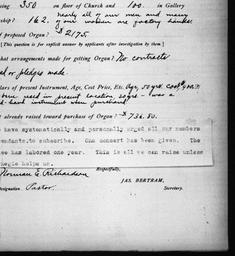 ing 350 on floor of Church and 100. in Gallery
nearly all of our men and many
ship? 162. of our women are factory hands
of proposed Organ? $2175.
[This question is for explicit answer by applicants after investigation by them.]
hat arrangements made for getting Organ? No contracts
or pledges made.
lars of present Instrument, Age, Cost Price, Etc. Age, 50 yrs. Cost
been used in present location 20 yrs - was a
hand instrument when purchased
t already raised toward purchase of Organ? $736.80.
have systematically and personally urged all our members
tendants to subscribe. One concert has been given. The
ee has labored one year. This is all we can raise unless
negie helps us.
Respectfully,
Norman E. Richardson
JAS. BERTRAM,
Designation Pastor. Secretary.